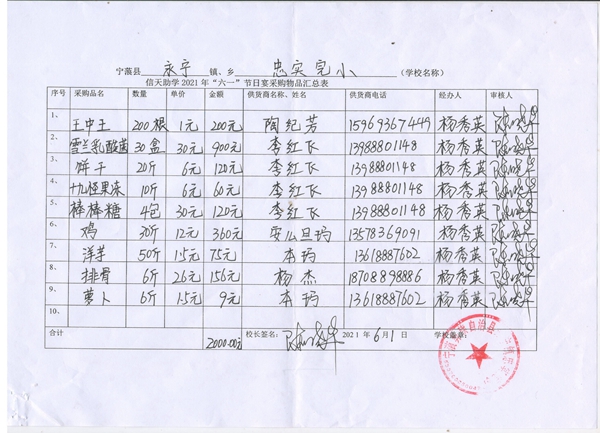 宁蒗县 永宁 镇、乡 忠实完小 (学校名称)
信天助学 2021 年“六一”节日宴采购物品汇总表
序号 采购品名 数量 单价 金额 供货商名称、姓名 供货商电话 经办人 审核人
1、 王中王 200根 1元 200元 陶纪芳 15969367449 杨秀英
2、 雪兰乳酸菌 30盒 30元 900元 李红飞 13988801148 杨秀英
3、 饼干 20斤 6元 120元 李红飞 13988801148 杨秀英
4、 十九怪果冻 10斤 6元 60元 李红飞 13988801148 杨秀英
5、 棒棒糖 4包 30元 120元 李红飞 13988801148 杨秀英
6、 鸡 30斤 12元 360元 安么旦玛 13578369091 杨秀英
7、 洋芋 50斤 1.5元 75元 本玛 13618887602 杨秀英
8、 排骨 6斤 26元 156元 杨杰 18708898886 杨秀英
9、 萝卜 6斤 1.5元 9元 本玛 13618887602 杨秀英
10、
合计 2000.00元 校长签名: 2021 年 6月1日 学校盖章: